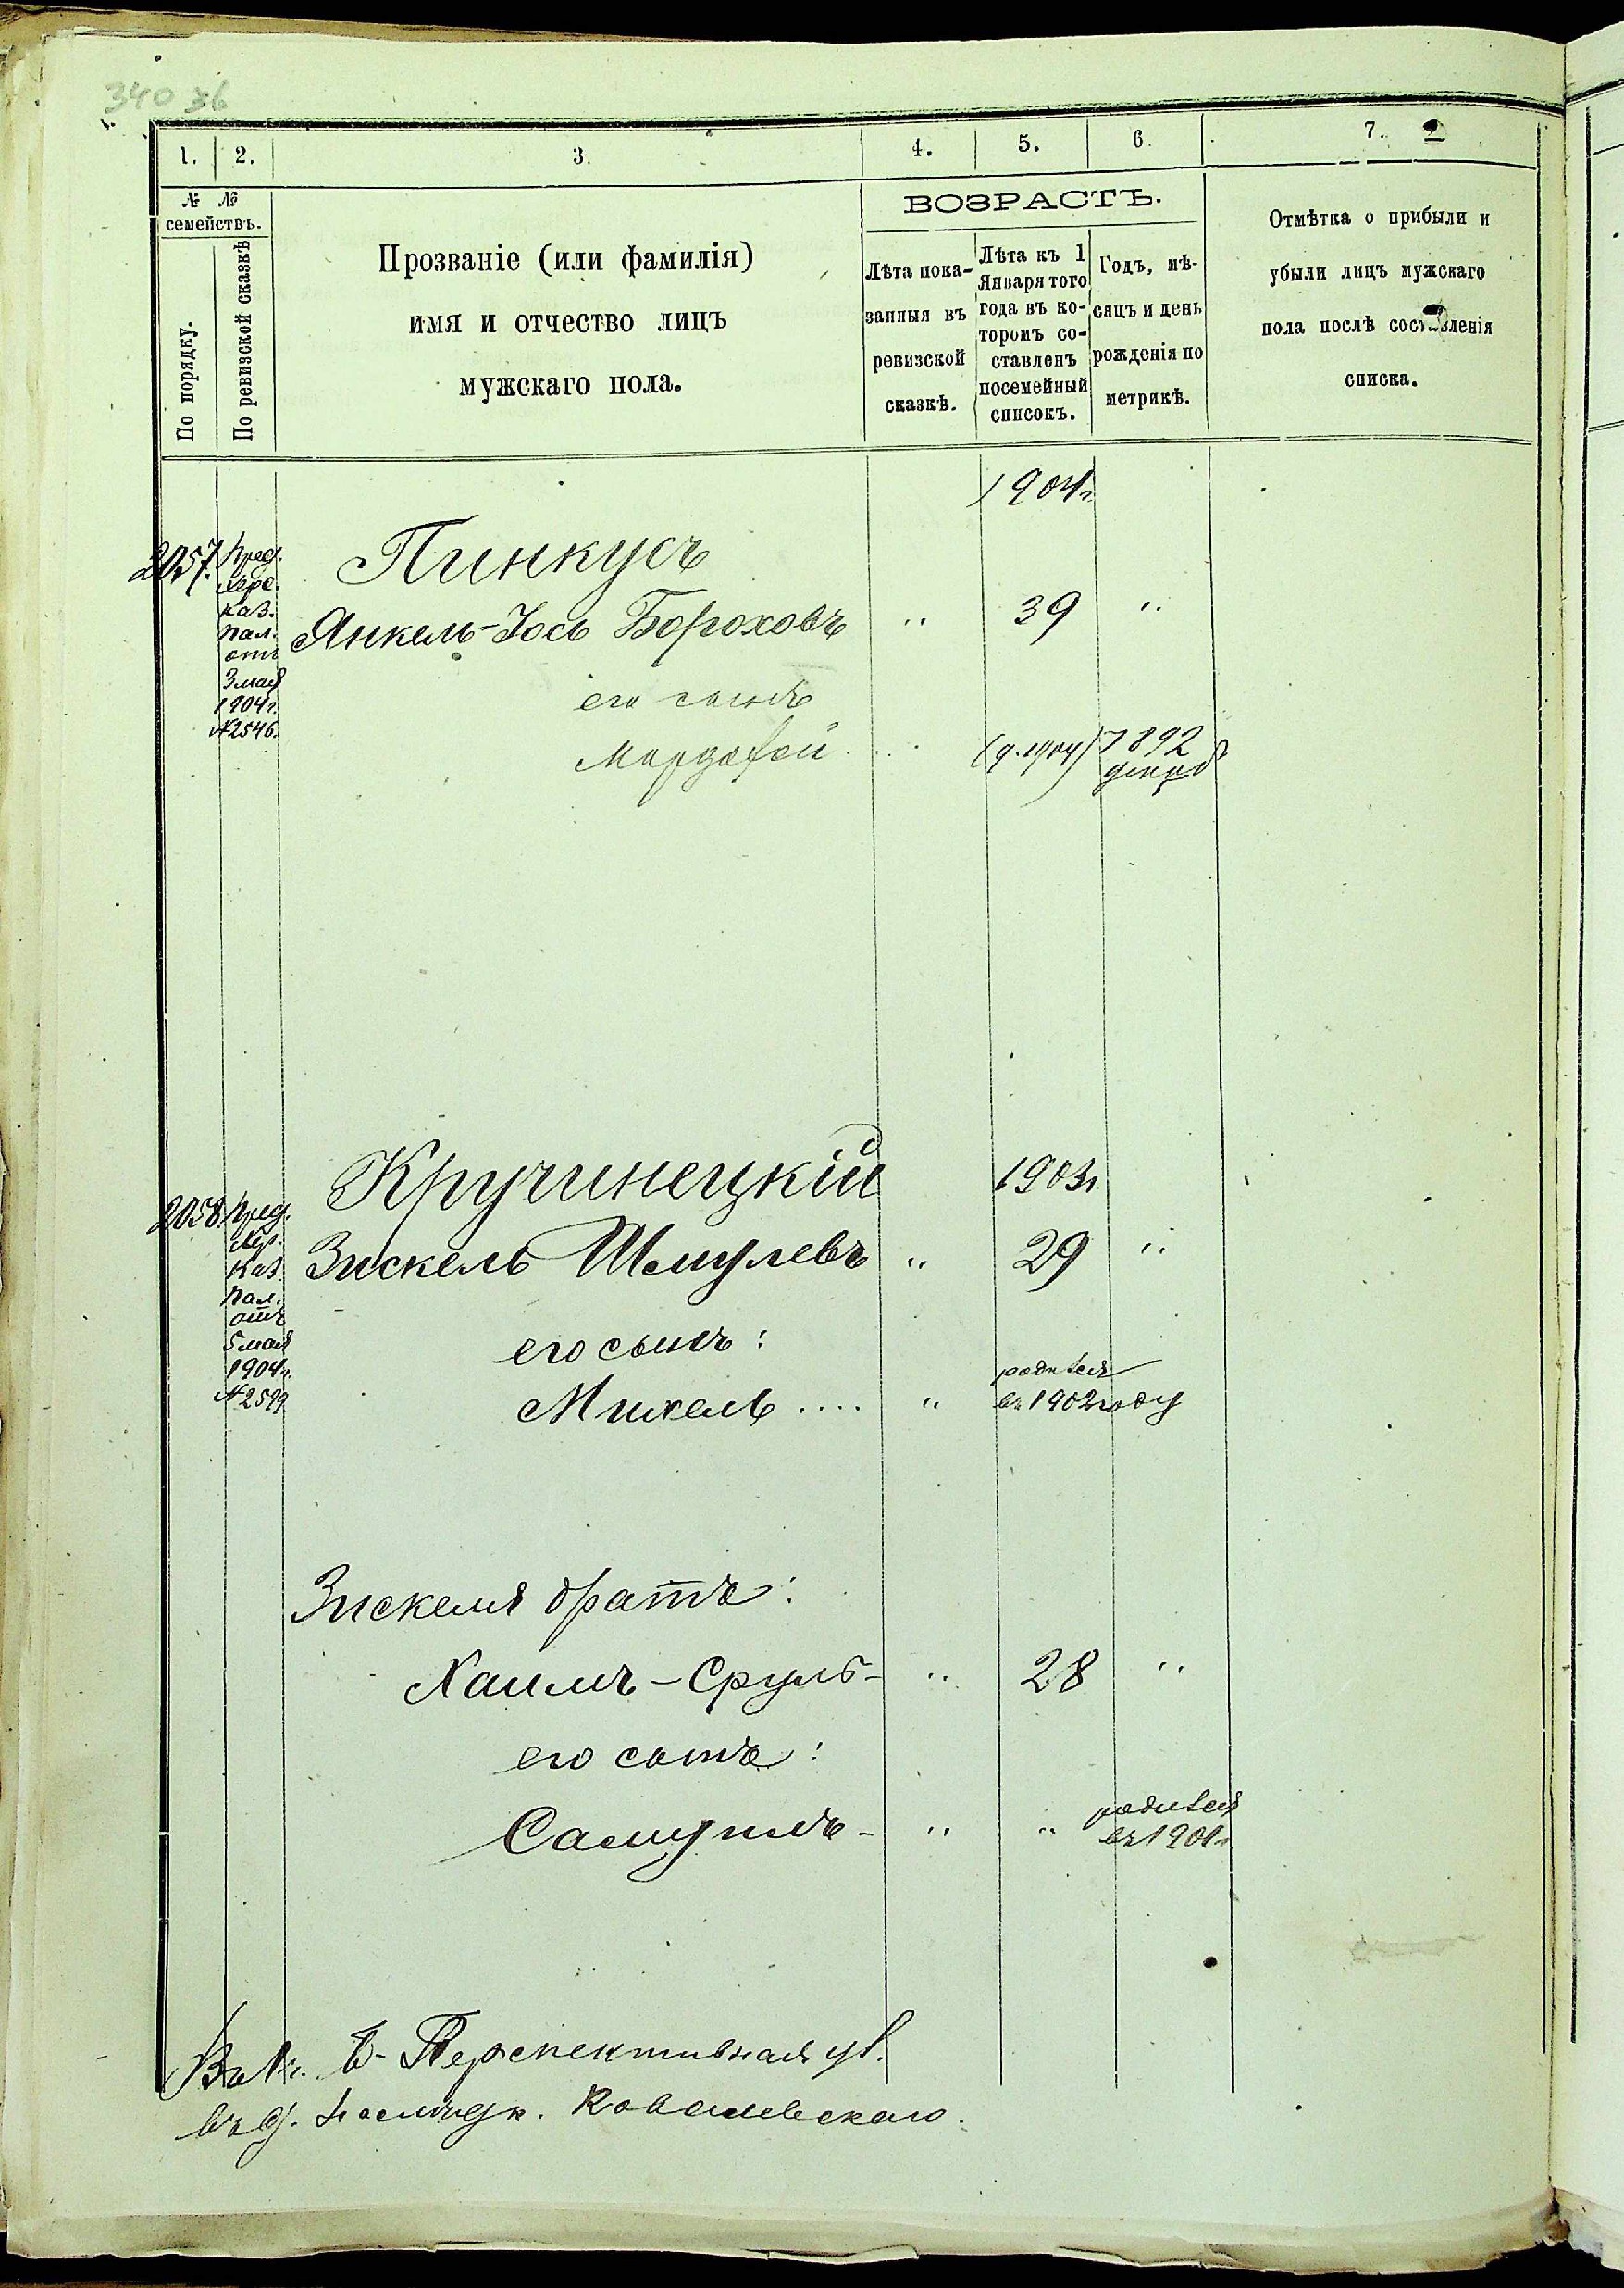 340 зв
1. 2. 3. 4. 5. 6. 7.
№ №
семействъ.
По порядку.
По ревизской сказкѣ
Прозваніе (или фамилія)
имя и отчество лицъ
мужскаго пола.
ВОЗРАСТЪ.
Лѣта пока-
занныя въ
ревизской
сказкѣ.
Лѣта къ 1
Января того
года въ ко-
торомъ со-
ставленъ
посемейный
списокъ.
Годъ, мѣ-
сяцъ и день
рожденія по
метрикѣ.
Отмѣтка о прибыли и
убыли лицъ мужскаго
пола послѣ составленія
списка.
1904г.
2057. Пред.
Хер.
Каз.
Пал.
отъ
3 мая
1904г.
№2546.
Пинкусъ
Янкель-Іось Бороховъ " 39 "
его сынъ
Мордехай 1892
1903г.
2058. Пред.
Хер.
Каз.
Пал.
отъ
5 мая
1904г.
№2599
Кручинецкій
Зискель Шмулевъ " 29 "
его сынъ:
Михель .... " родился
въ 1902 году
Зискеля братъ:
Хаимъ-Сруль- " 28 "
его сынъ:
Самуилъ- " " родился
въ 1901г.
Б-Перспективная ул.
въ д. наслѣдк. Ковалевскаго.